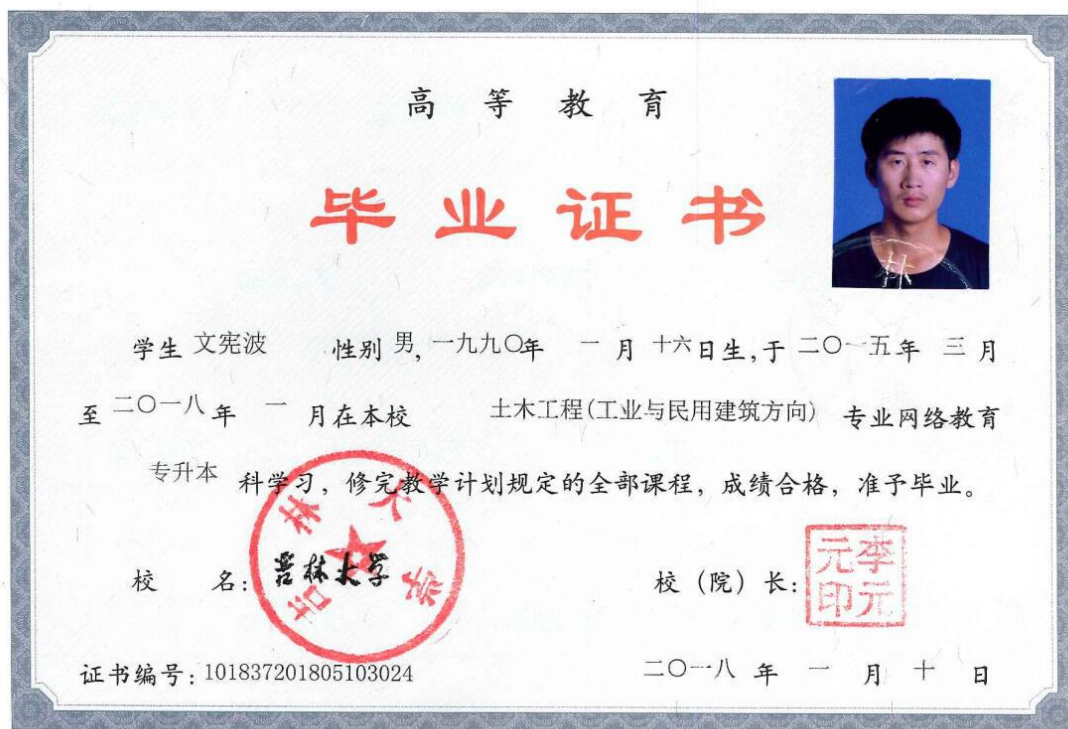 高等教育
毕业证书
林
学生 文宪波 性别 男, 一九九〇年 一 月 十六日生, 于 二〇一五年 三 月
至 二〇一八 年 一 月在本校 土木工程(工业与民用建筑方向) 专业网络教育
专升本 科学习, 修完教学计划规定的全部课程, 成绩合格, 准予毕业。
校 名: 吉林大学
吉林大学
校 (院) 长: 李元元印
证书编号: 101837201805103024
二〇一八 年 一 月 十 日